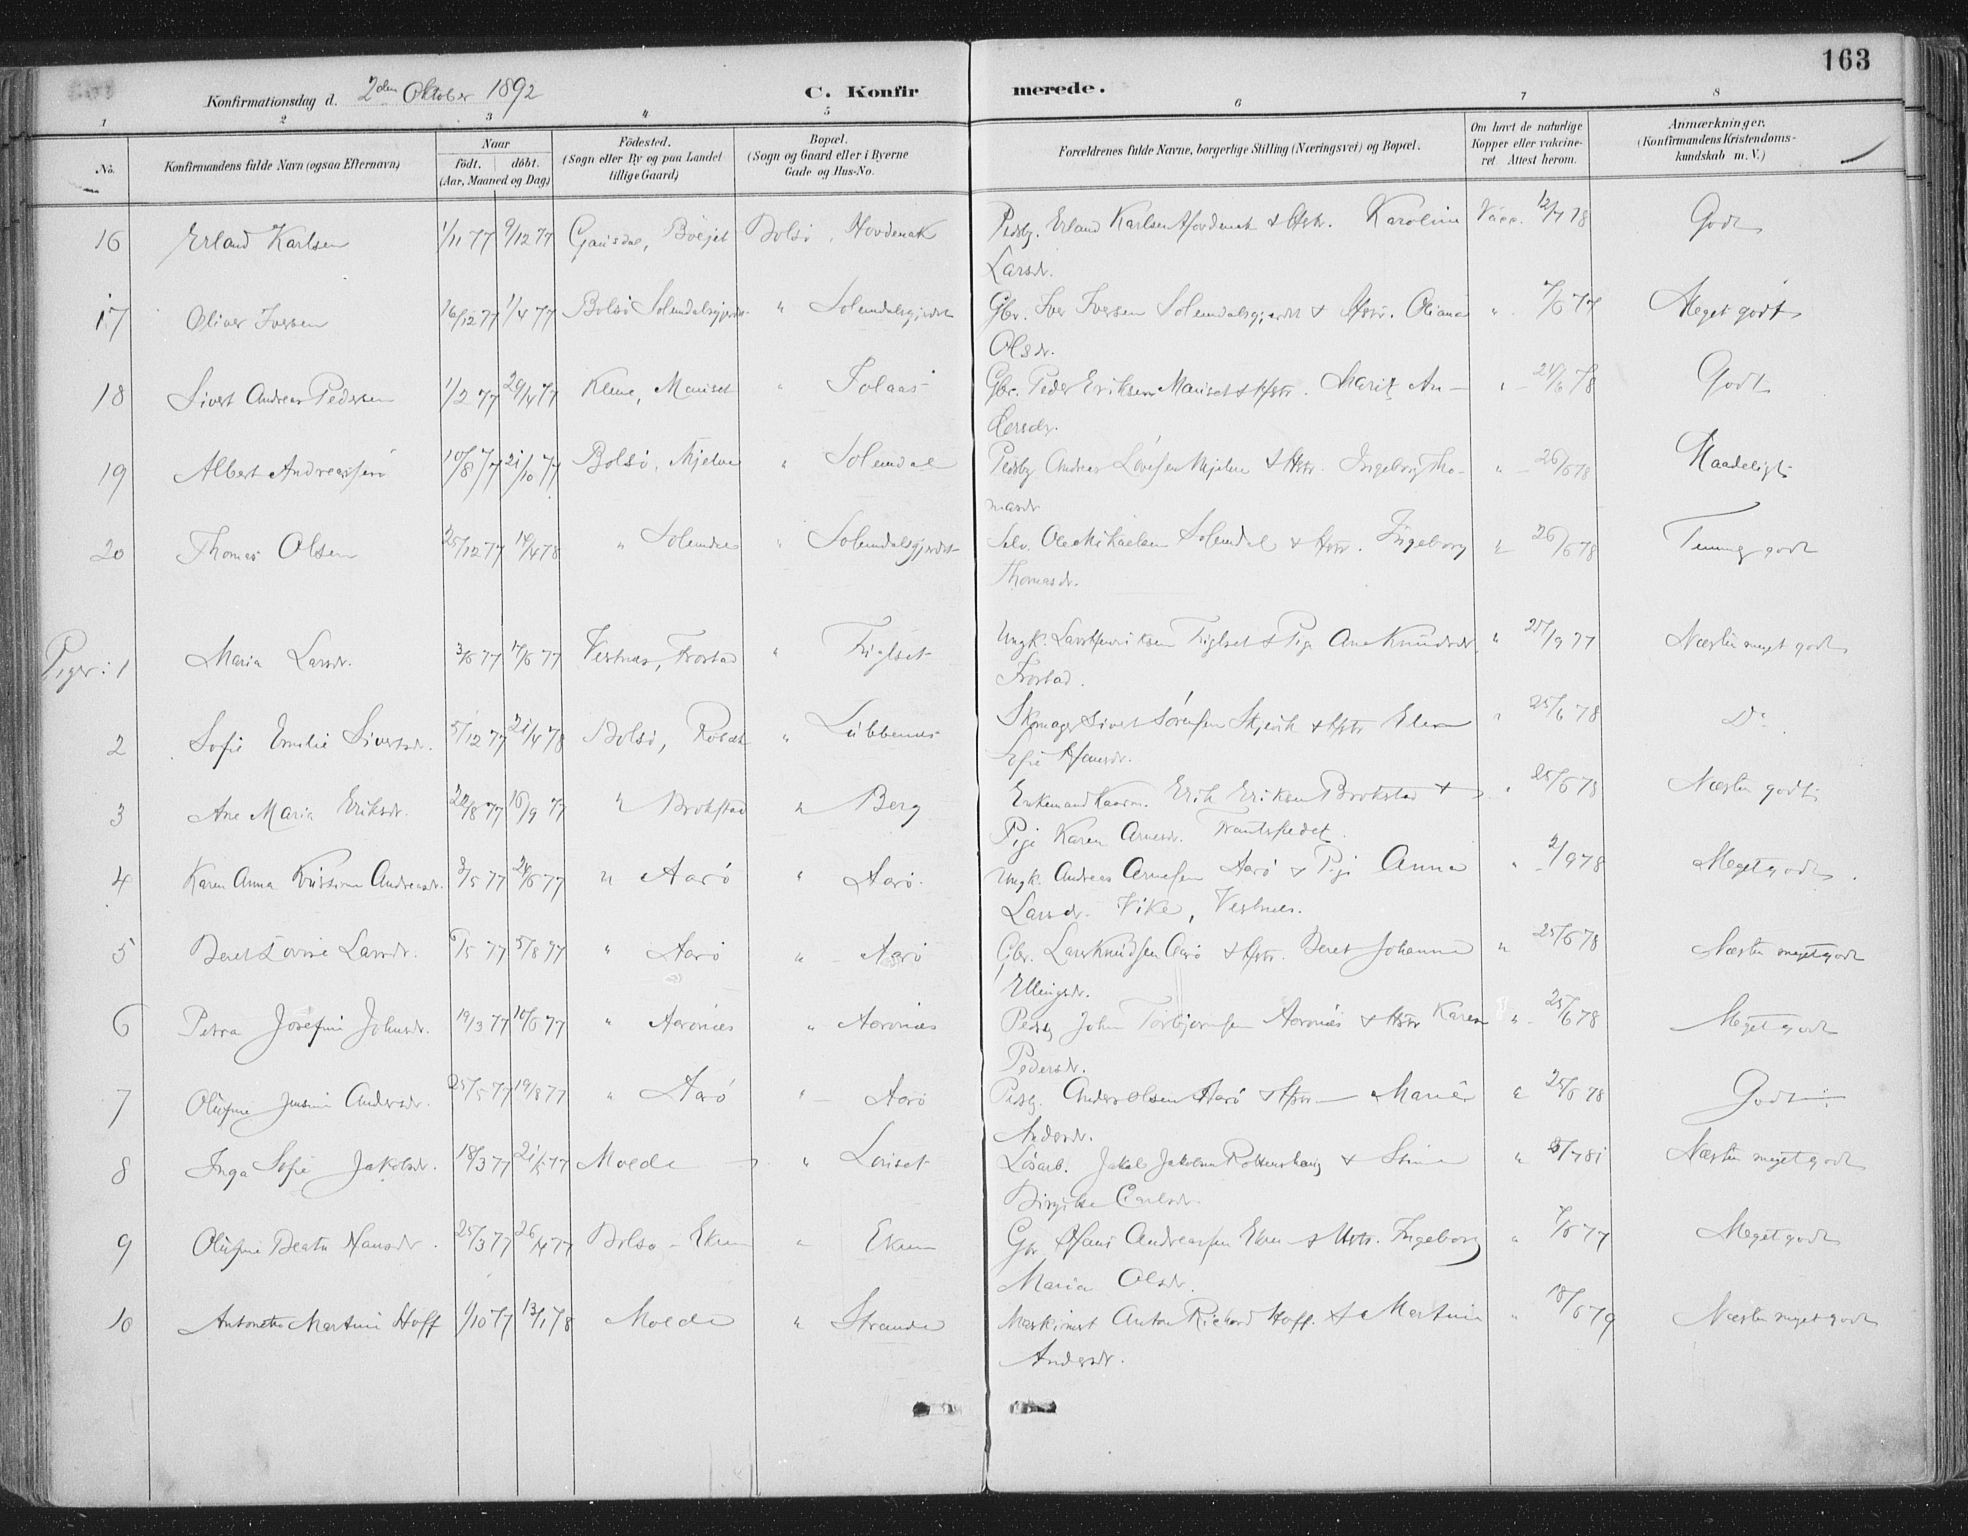 163
Konfirmationsdag d. 2den Oktober 1892 C. Konfirmerede.
1 2 3 4 5 6 7 8
No. Konfirmandens fulde Navn (ogsaa Efternavn) Naar födt. döbt. (Aar, Maaned og Dag) Födested. (Sogn eller By og paa Landet tillige Gaard) Bopæl. (Sogn og Gaard eller i Byerne Gade og Hus-No. Forældrenes fulde Navne, borgerlige Stilling (Næringsvei) og Bopæl. Om havt de naturlige Kopper eller vakcineret. Attest herom. Anmærkninger. (Konfirmandens Kristendomskundskab m. V.)
16 Erland Karlsen 1/11 77 9/12 77 Bolsö, Hovdenak Pedsbg. Erland Karlsen Hovdenak & Hstr. Karoline Vacc. 12/7 78 Godt
Larsdr.
17 Oliver Iversen 16/12 77 1/4 77 Bolsö Solemdalsgjerdet " Solemdalsgjerdet Gbr. Iver Iversen Solemdalsgjerdet & Hstr. Oliana " 7/6 77 Meget godt
Olsdr.
18 Sivert Andreas Pedersen 1/2 77 29/4 77 Kleve, Mariset " Solaas Gbr. Peder Eriksen Mariset & Hstr. Marit An- " 24/6 78 Godt
dersdr.
19 Albert Andreassen 10/8 77 21/10 77 Bolsö, Mjelve " Solemdal Pedsbg Andreas Mjelve & Hstr. Ingeborg Tho- " 26/6 78 Maadeligt
masdr
20 Thomas Olsen 25/12 77 14/4 78 " Solemdal " Solemdalsgjerdet Selv. Ole Mikaelsen Solemdal & Hstr. Ingeborg " 26/6 78 Temmelig godt
Thomasdr.
Piger: 1 Maria Larsdr. 3/6 77 17/6 77 Vestnæs, Frostad " Triglset Ungk. Lars Henriksen Triglset & Pige Ane Knudsdr " 25/9 77 Næsten meget godt
Frostad.
2 Sofie Emilie Sivertsdr. 5/12 77 21/4 78 Bolsö, " Lübbenæs Skomager Sivert Sörensen Skjevik & Hstr Elen " 25/6 78 Do
Hansdr.
3 Ane Maria Eriksdr. 22/8 77 16/9 77 " Brokstad " Berg Enkemand Erik Eriksen Brokstad & " 25/6 78 Næsten godt
Pige Karen Arnesdr.
4 Karen Anna Kristine Andreasdr. 3/5 77 24/6 77 " Aarö " Aarö. Ungk. Andreas Arnesen Aarö & Pige Anna " 2/9 78 Meget godt
Larsdr. Vike, Vestnæs.
5 Beret Lovise Larsdr. 6/5 77 5/8 77 " Aarö " Aarö Gbr. Lars Knudsen Aarö & Hstr. Beret Johanna " 25/6 78 Næsten meget godt
Ellingsdr.
6 Petra Josefine Johnsdr. 19/3 77 10/6 77 " Aarönæs " Aarönæs Pedsbg John Torbjörnsen Aarönæs & Hstr Karen " 25/6 78 Meget godt
Pedersdr.
7 Olufine Jensine Andersdr. 25/5 77 19/8 77 " Aarö " Aarö Pedsbg. Anders Olsen Aarö & Hstr — Marie " 25/6 78 Godt
Andersdr.
8 Inga Sofie Jakobsdr. 18/3 77 21/5 77 Molde " Loviset Lösarb. Jakob Jakobsen & Stine " 8/7 81 Næsten meget godt
Birgitte Carlsdr.
9 Olufine Beate Hansdr. 25/3 77 26/4 77 Bolsö - Ekren " Ekren Gbr Hans Andreassen Ekren & Hstr. Ingeborg " 7/6 77 Meget godt
Maria Olsdr.
10 Antonette Martine Hoff 1/10 77 13/1 78 Molde " Strande Maskinist Anton Richard Hoff. & Martine " 18/6 79 Næsten meget godt
Andersdr.